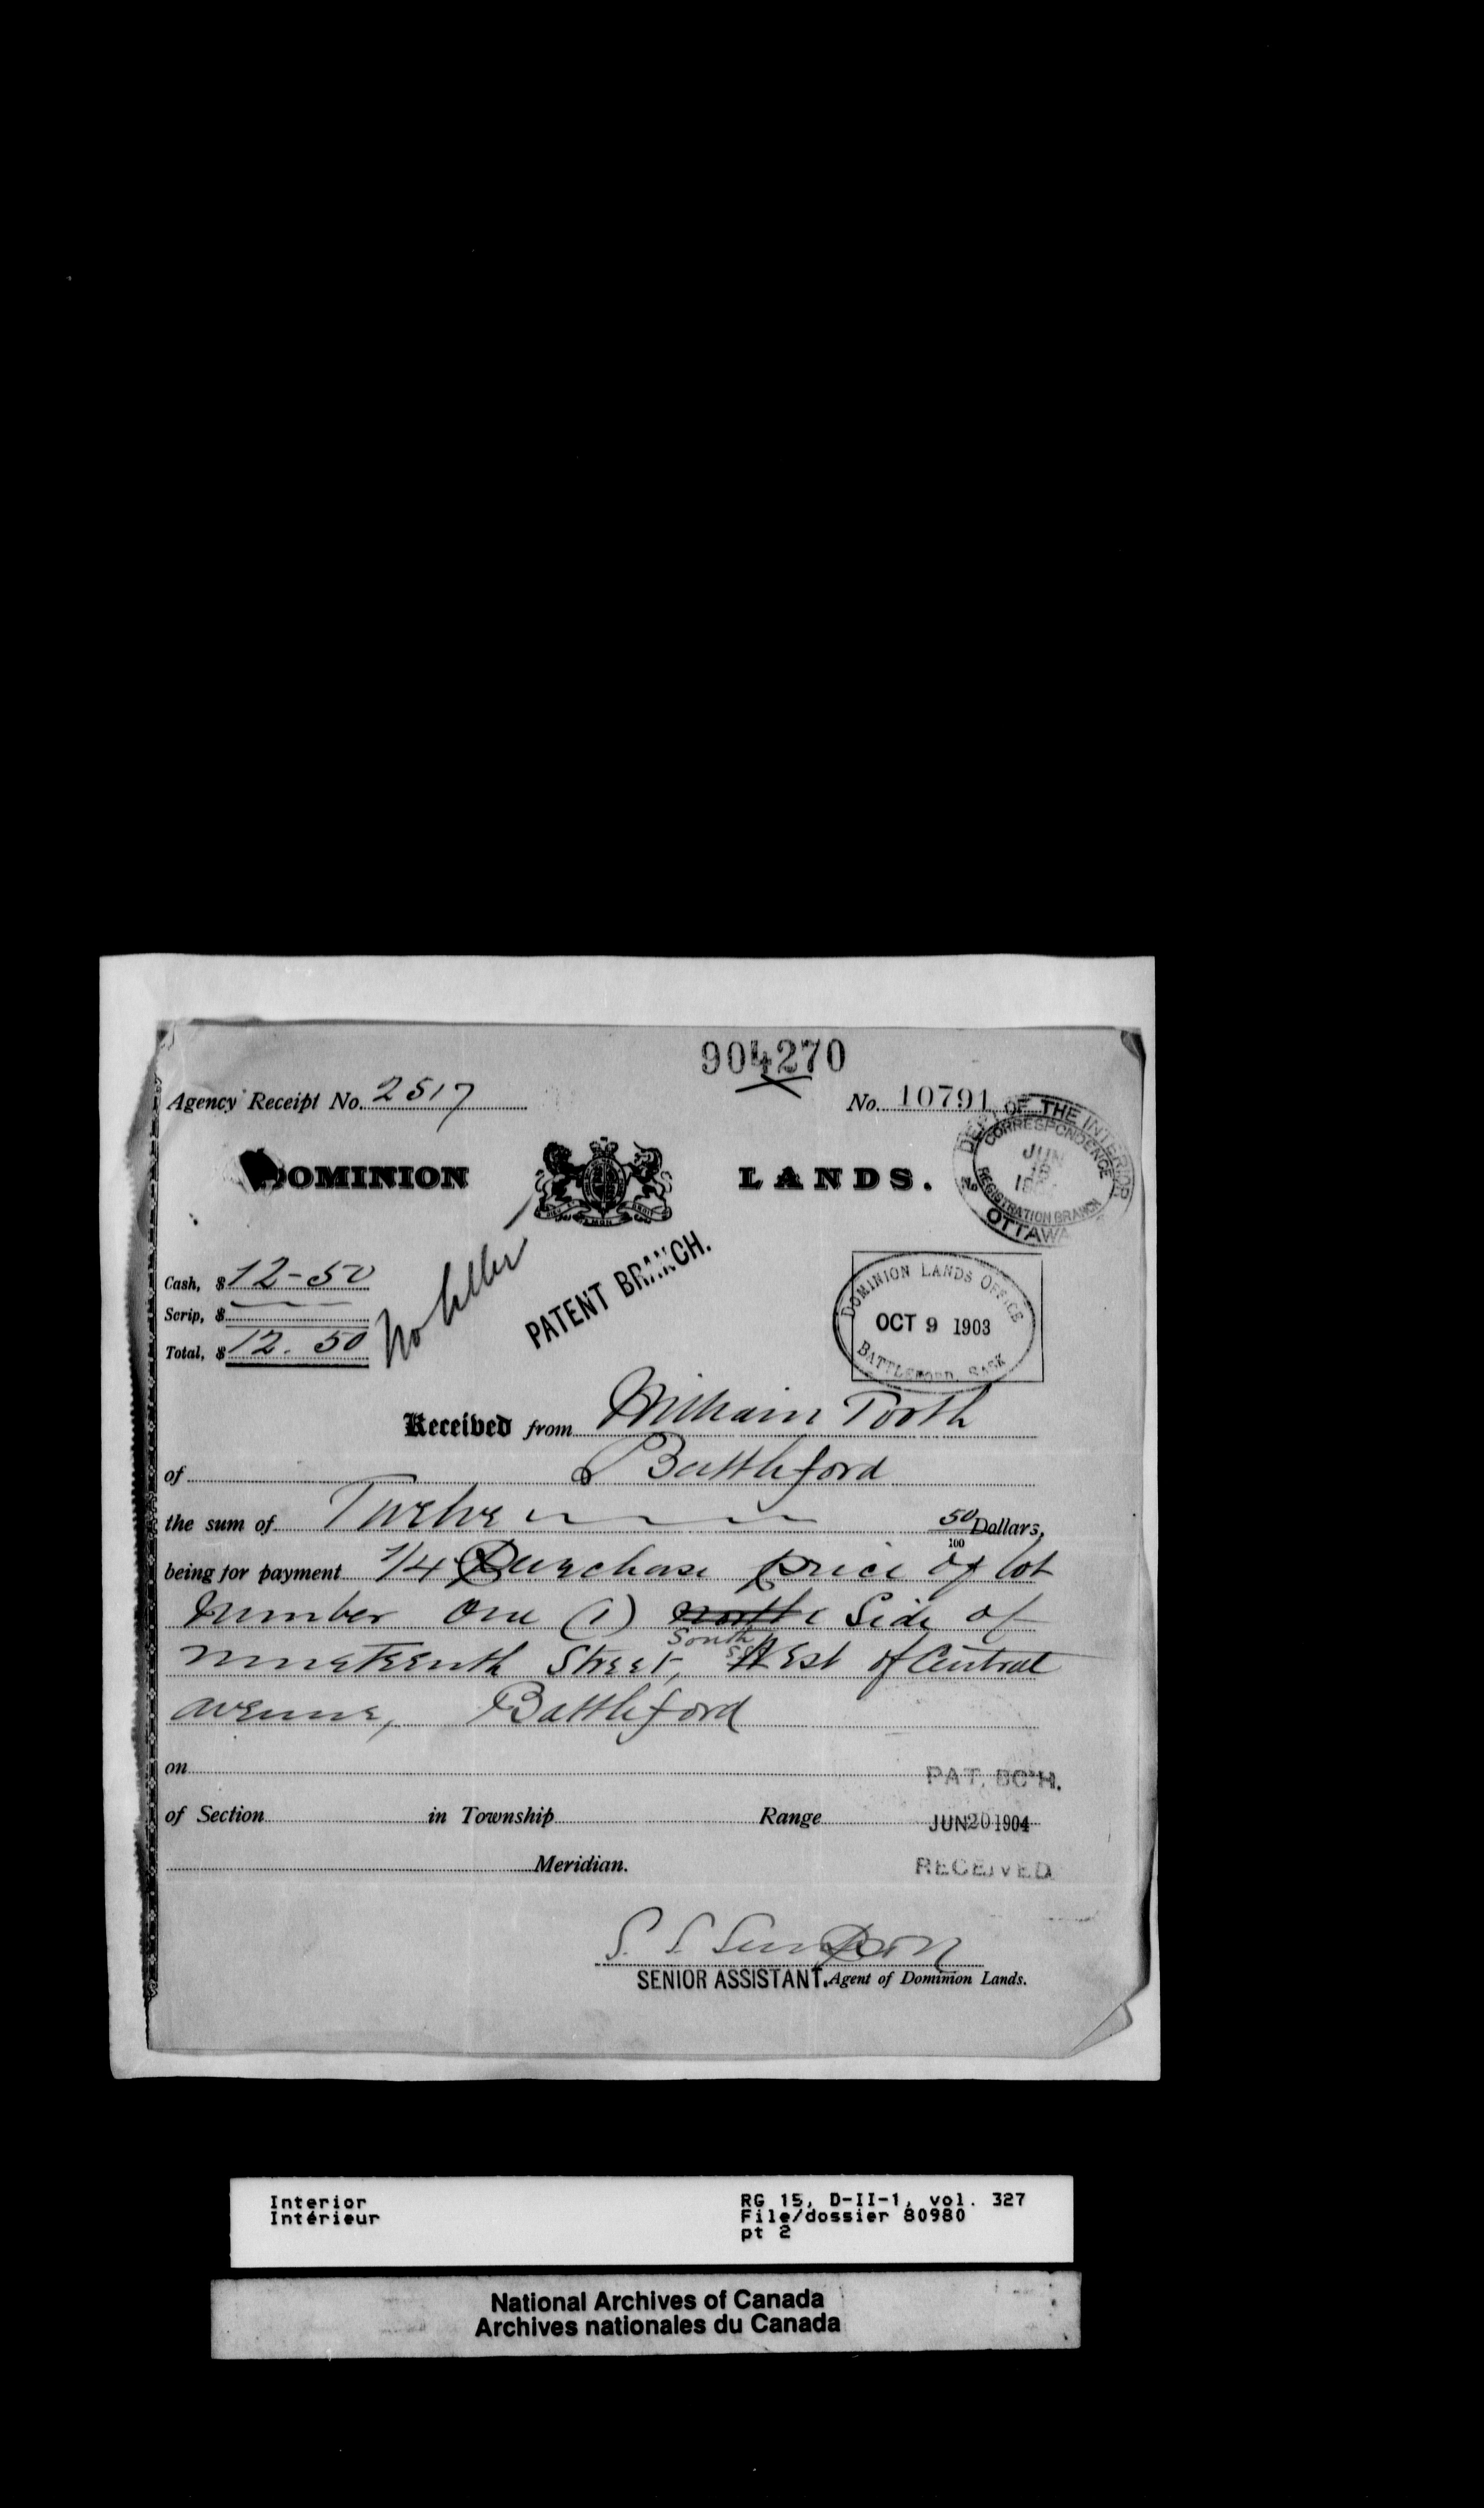 904270
Agency Receipt No. 2517
No. 10791
DEPT OF THE INTERIOR
CORRESPONDENCE
JUN
REGISTRATION BRANCH
OTTAWA
DOMINION LANDS.
No letter
PATENT BRANCH.
Cash, $ 12-50
Scrip, $
Total, $ 12.50
DOMINION LANDS OFFICE
OCT 9 1903
BATTLEFORD, SASK
Received from William Tooth
of Battleford
the sum of Twelve 50/100 Dollars,
being for payment 1/4 Purchase price of lot
Number One (1) north Side of
South
nineteenth Street, West of Central
avenue, Battleford
on
PAT. BCH.
of Section in Township Range
JUN 20 1904
Meridian.
RECEIVED
S. S. Simpson
SENIOR ASSISTANT. Agent of Dominion Lands.
Interior
Intérieur
RG 15, D-II-1, vol. 327
File/dossier 80980
pt 2
National Archives of Canada
Archives nationales du Canada